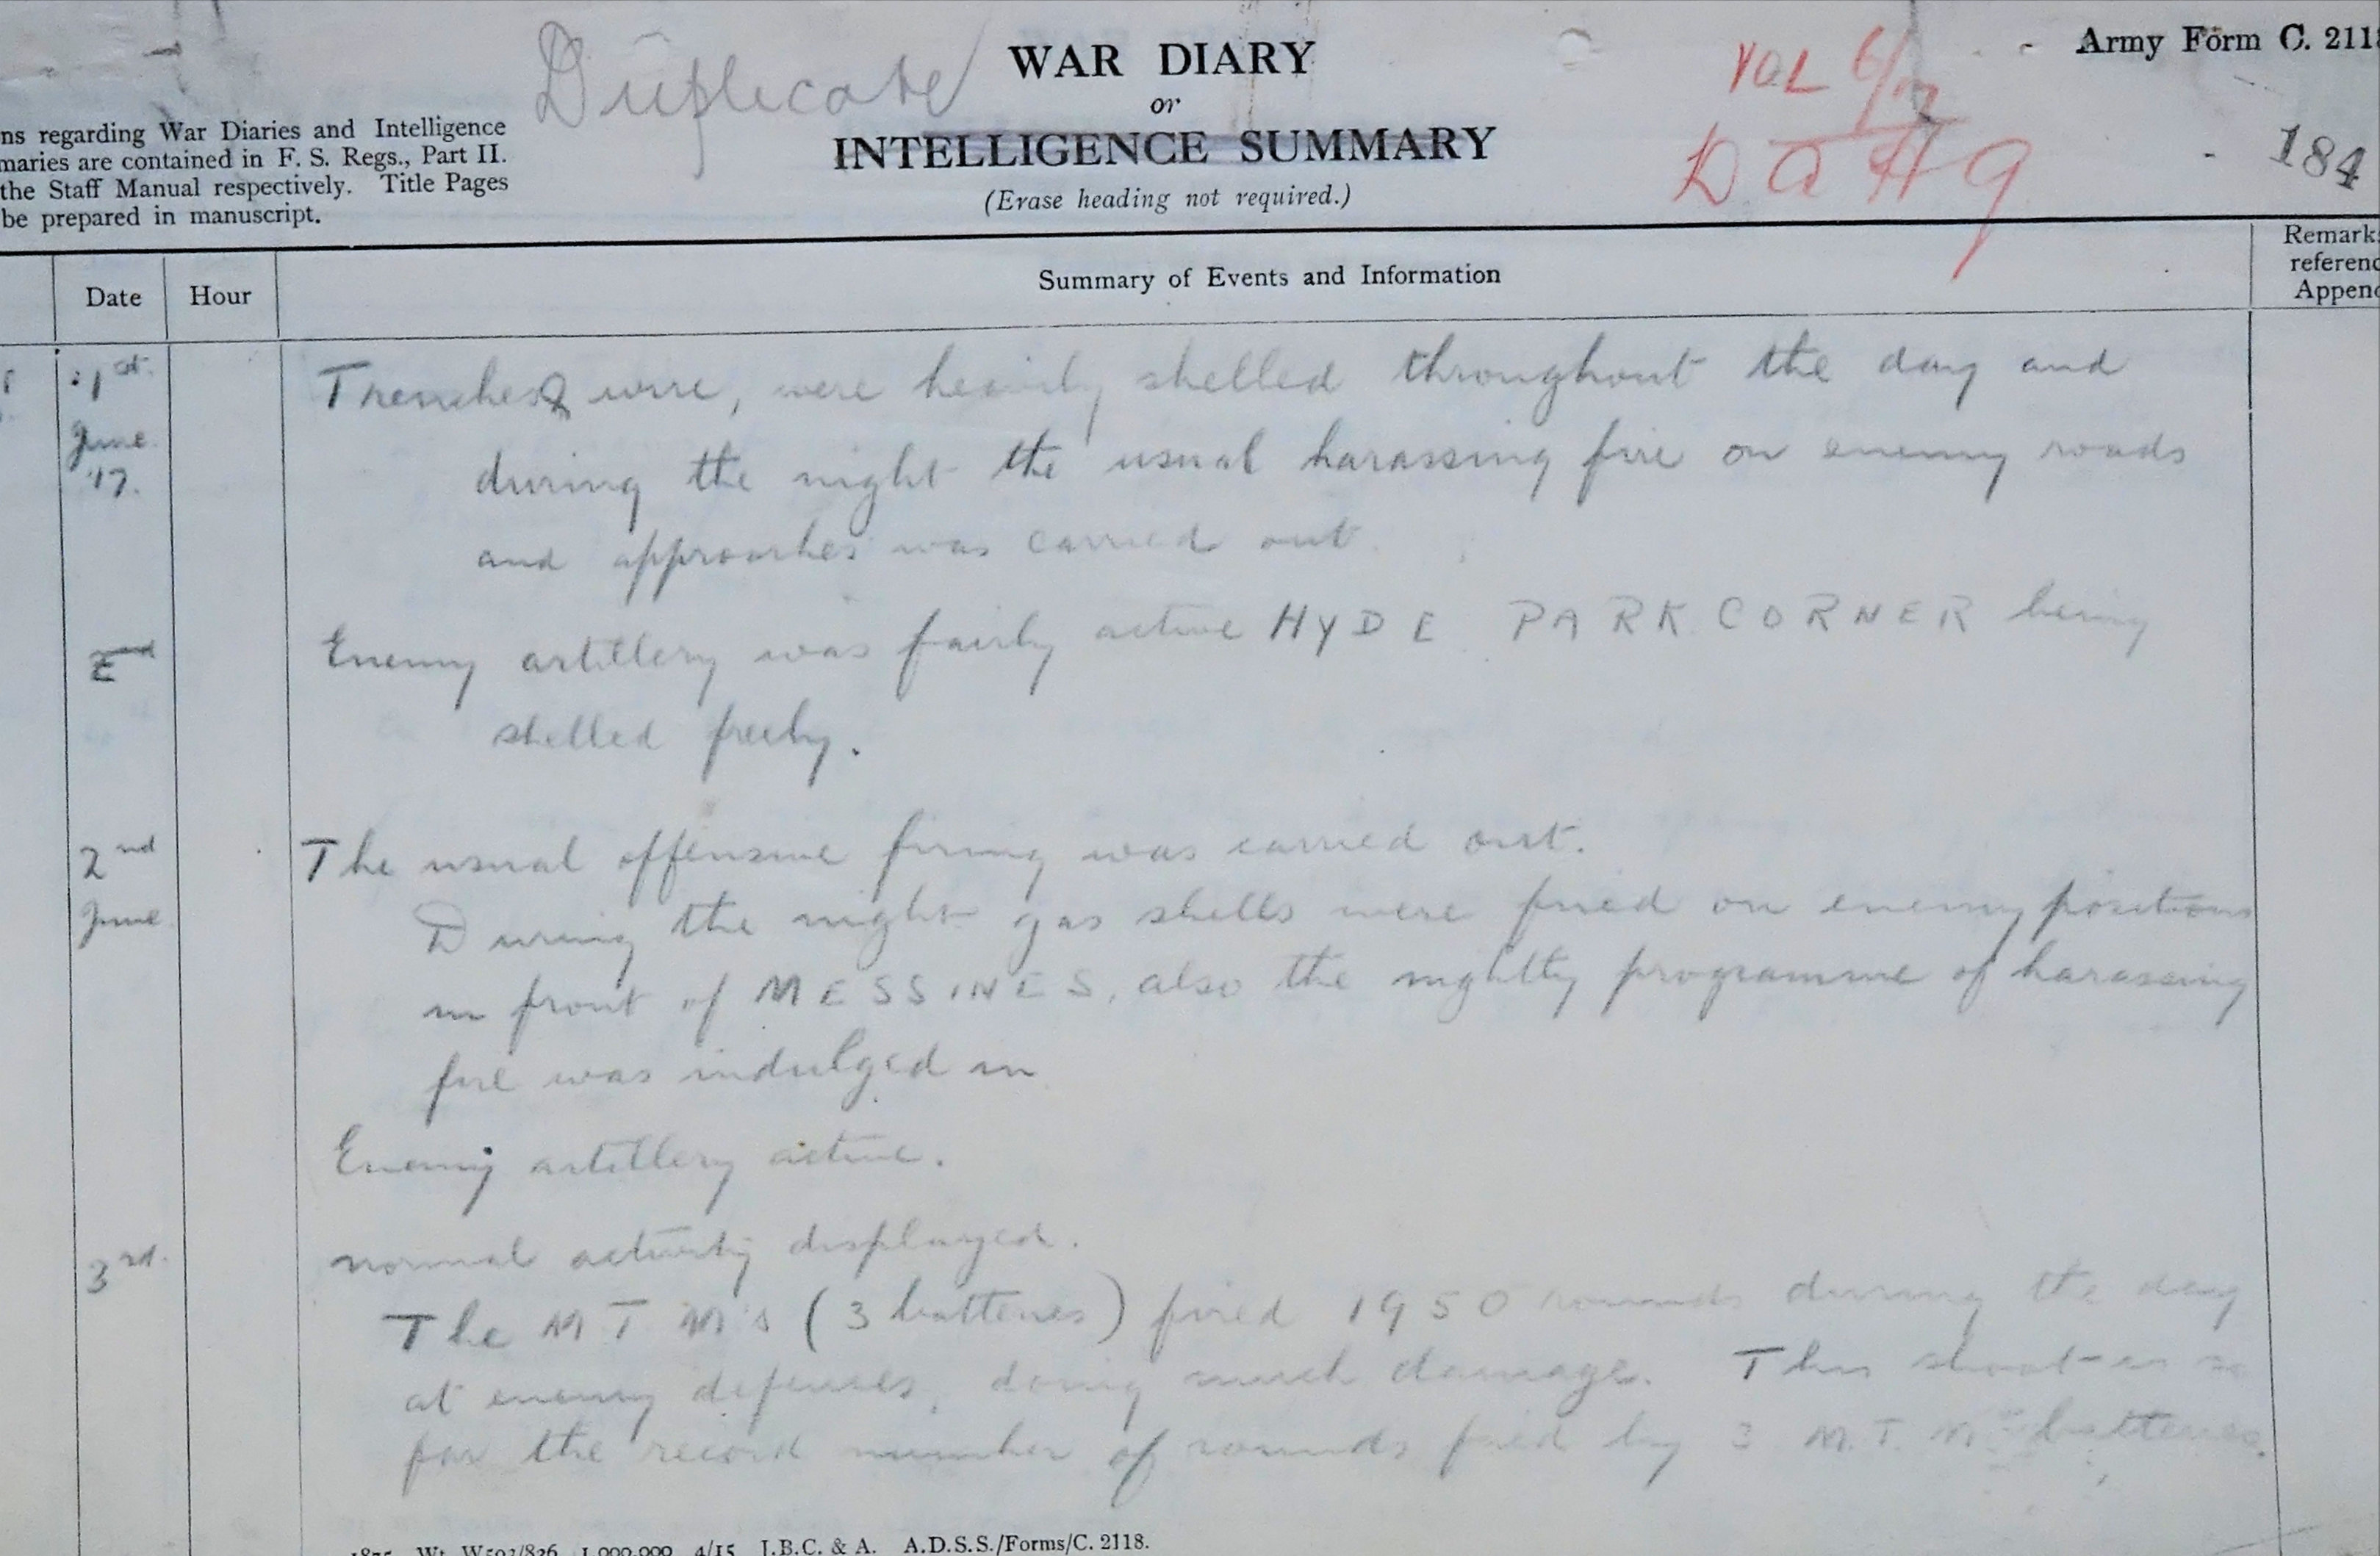 Duplicate
WAR DIARY
or
INTELLIGENCE SUMMARY
(Erase heading not required.)
VOL 6/7
DAHQ
Army Form C. 2118
184
ns regarding War Diaries and Intelligence
maries are contained in F. S. Regs., Part II.
the Staff Manual respectively. Title Pages
be prepared in manuscript.
Date Hour Summary of Events and Information
Remark
referenc
Append
1st June '17. Trenches & wire, were heavily shelled throughout the day and
during the night the usual harassing fire on enemy roads
and approaches was carried out.
Enemy artillery was fairly active HYDE PARK CORNER being
shelled freely.
2nd June The usual offensive firing was carried out.
During the night gas shells were fired on enemy positions
in front of MESSINES, also the nightly programme of harassing
fire was indulged in
Enemy artillery active.
3rd. normal activity displayed.
The MTM's (3 batteries) fired 1950 rounds during the day
at enemy defenses, doing much damage. This shoot is so
far the record number of rounds fired by 3 M.T.M. batteries.
1875 Wt. W593/826 1,000,000 4/15 J.B.C. & A. A.D.S.S./Forms/C. 2118.